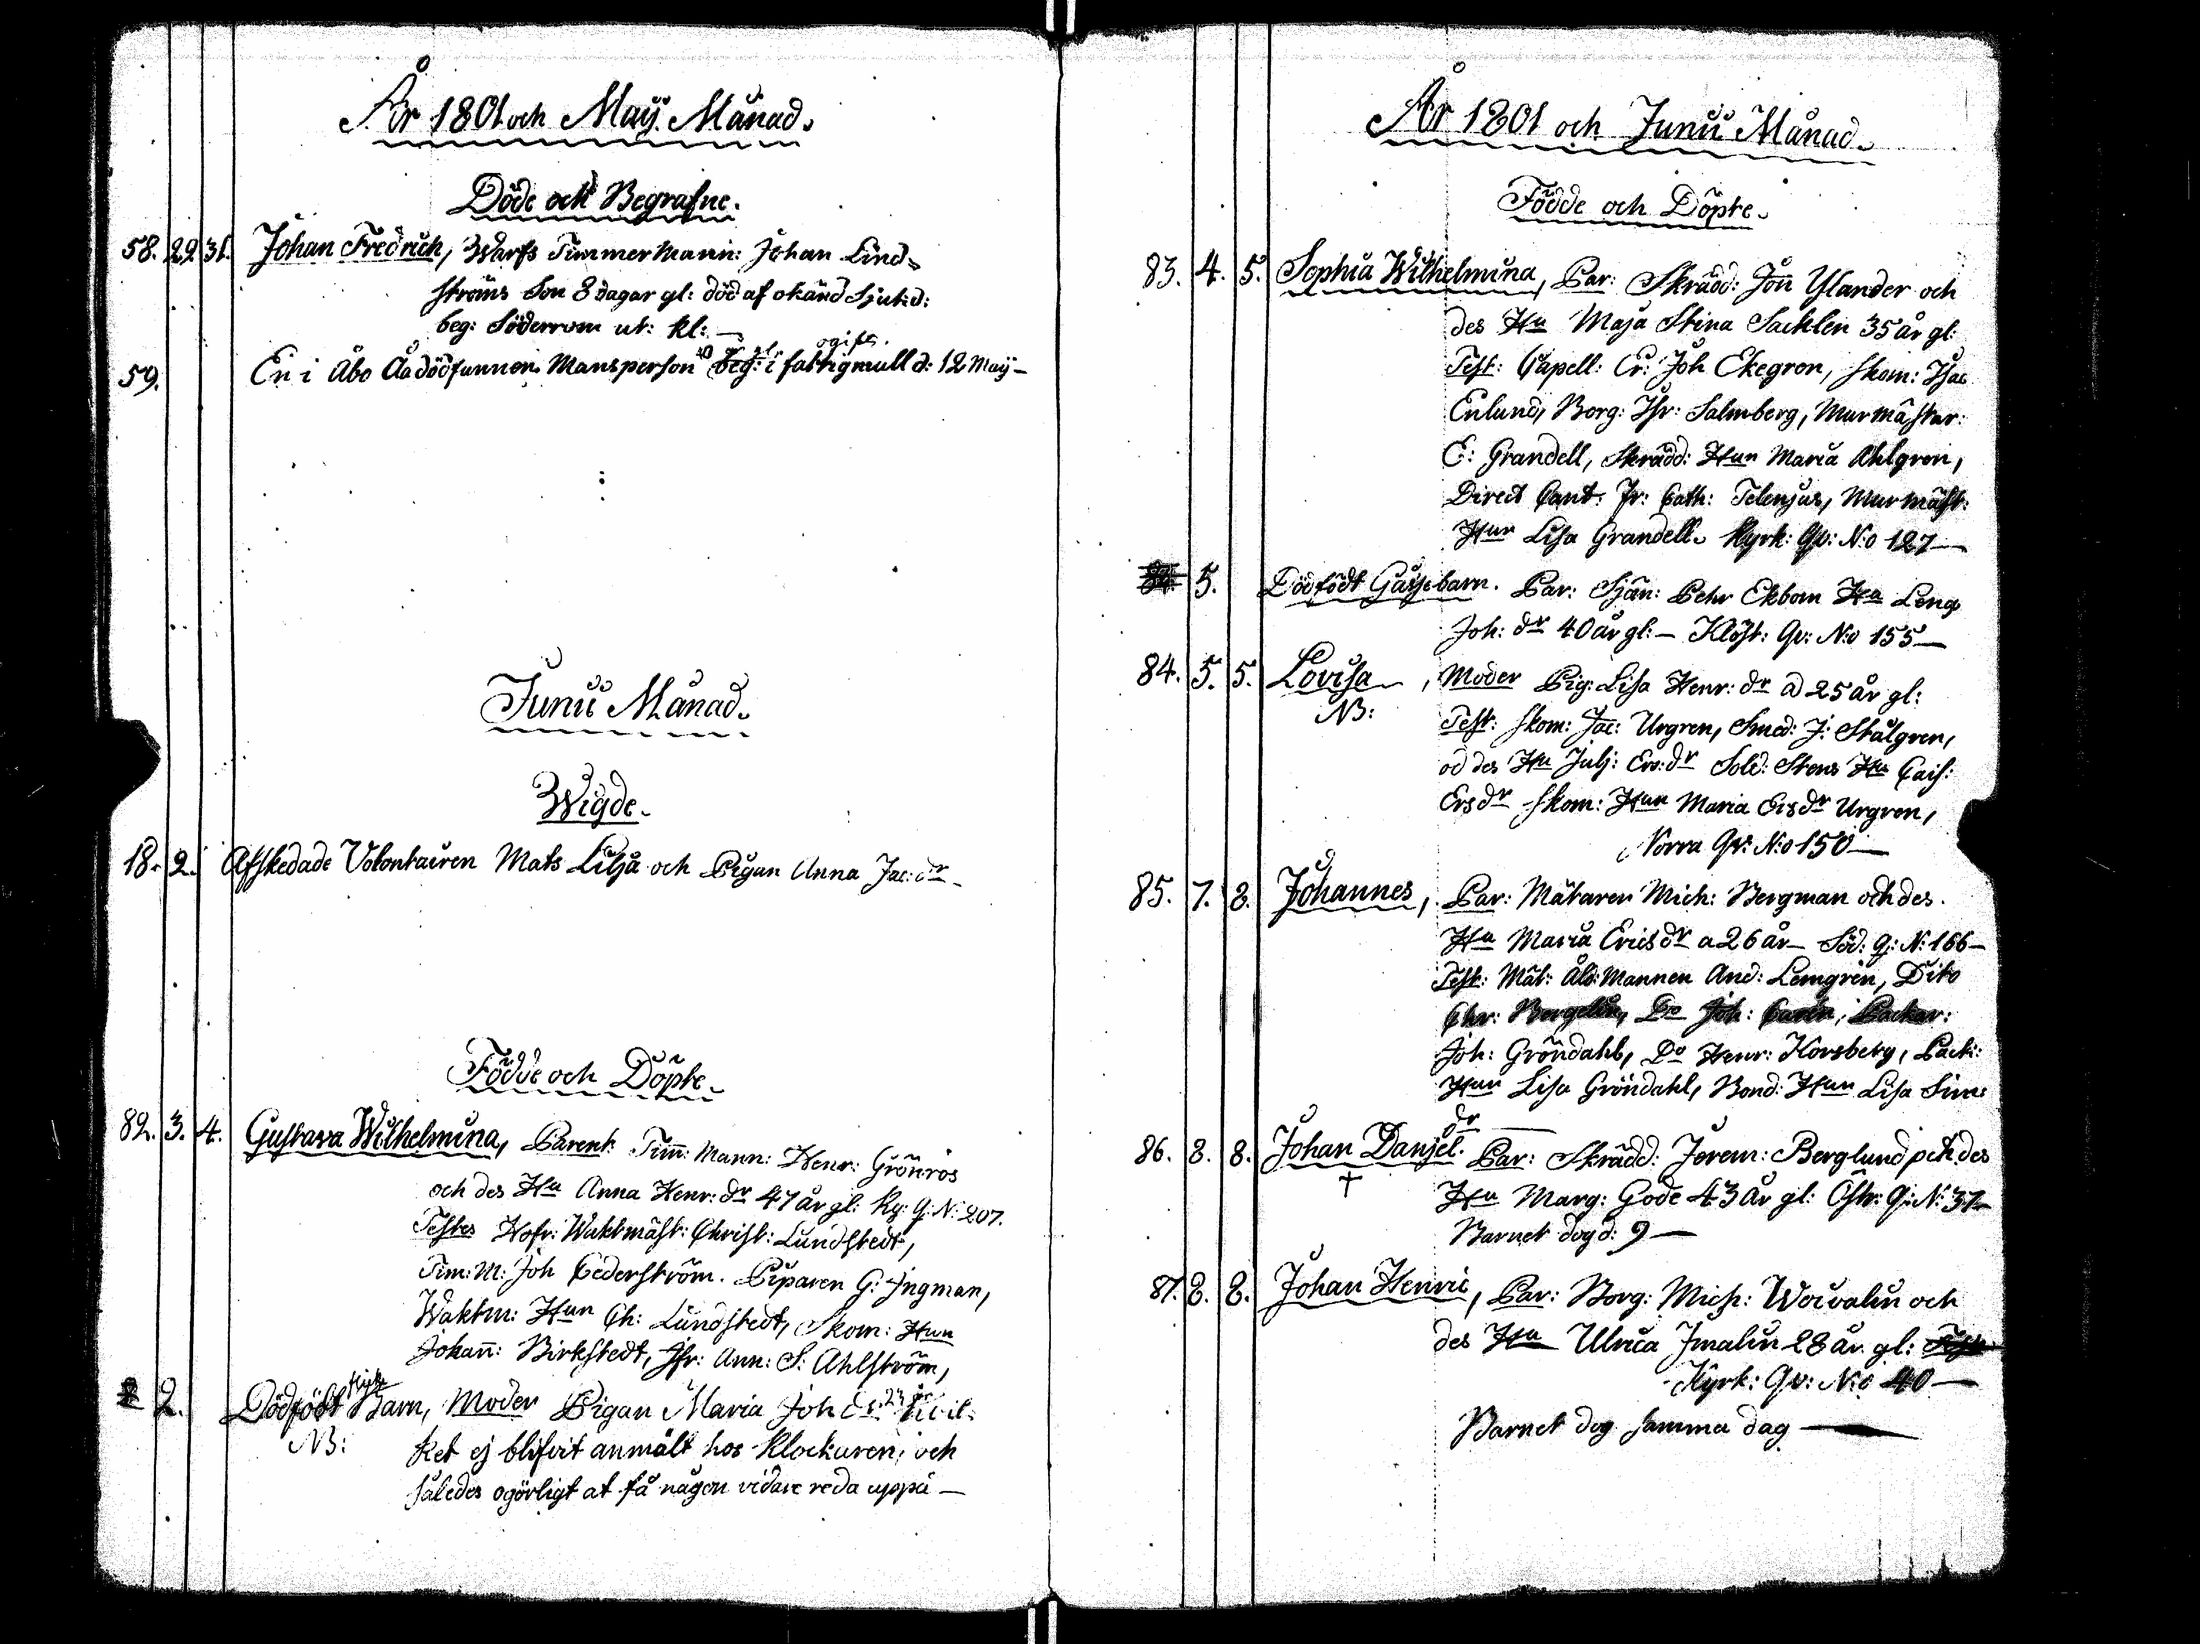 År 1801 och Maij Månad.
Döde och Begrafne.
58. 22 31. Johan Fredrich, Warfs Timmermann: Johan Lind=
ströms Son 8 dagar gl: död af okänd Sjukd:
beg: Söderrom ut: kl: —
ogift.
59. En i Åbo Åa dödfunnen Mansperson 40 år gl: i fattigmull d: 12 Maij —
Junii Månad.
Wigde.
18. 2. Afskedade Volontairen Mats Lilja och Pigan Anna Jac: dr —
Födde och Döpte.
82. 3. 4. Gustava Wilhelmina, Parent: Tim: Mann: Henr: Grönros
och des Hu Anna Henr: dr 47 år gl: Ky: Q: N: 207.
Testes Hofr: Waktmäst: Christ: Lundstedt,
Tim: M: Joh Cederström. Piparen G: Ingman,
Waktm: Hun Ch: Lundstedt, Skom: Hun
Johan: Birkstedt, Jfr: Ann: S: Ahlström,
2. Dödfödt flicke Barn, Moder Pigan Maria Joh dr 23 år hvil:
NB: ket ej blifvit anmält hos Klockaren; och
således ogörligt at få någon vidare reda uppå —
År 1801 och Junii Månad.
Födde och Döpte.
83. 4. 5. Sophia Wilhelmina, Par: Skrädd: Jon Ylander och
des Hu Maja Stina Sacklen 35 år gl:
Test: Capell: Er: Joh Ekegren, Skom: Isac
Enlund, Borg: Jfr: Salmberg, Murmästar:
E: Grandell, Skrädd: Hun Maria Ahlgren,
Direct Cant: Fr: Cath: Telenjus, Murmäst:
Hun Lisa Grandell. Kyrk: Qv: N:o 127 —
84. 5. Dödfödt Gåsjebarn. Par: Sjön: Pehr Ekbom Hu Lena
Joh: dr 40 år gl: — Klöst: Qv: N:o 155 —
84. 5. 5. Lovisa, Moder Pig: Lisa Henr: dr a 25 år gl:
NB: Test: Skom: Jac: Urgren, Smed: J: Stålgren,
od des Hu Julj: Ers: dr Sold: Stens Hu Cais:
Ersdr Skom: Hun Maria Ersdr Urgren,
Norra Qv: N:o 150 —
85. 7. 8. Johannes, Par: Mätaren Mich: Bergman och des
Hu Maria Ericsdr a 26 år — Söd: q: N: 166 —
Test: Mät: Åld: Mannen And: Lemgrén, Dito
Chr: Bergelin, Do Joh: Packar:
Joh: Gröndahl, Do Henr: Korsberg, Pack:
Hun Lisa Gröndahl, Bond: Hun Lisa Sim:
dr —
86. 8. 8. Johan Danjel. Par: Skrädd: Jerem: Berglund och des
† Hu Marg: Gode 43 år gl: Östr: Q: N: 37 —
Barnet dog d: 9 —
87. 8. 8. Johan Henric, Par: Borg: Mich: Woivalin och
des Hu Ulrica Imalin 28 år gl: Test:
Kyrk: Qv: N:o 40 —
Barnet dog samma dag —